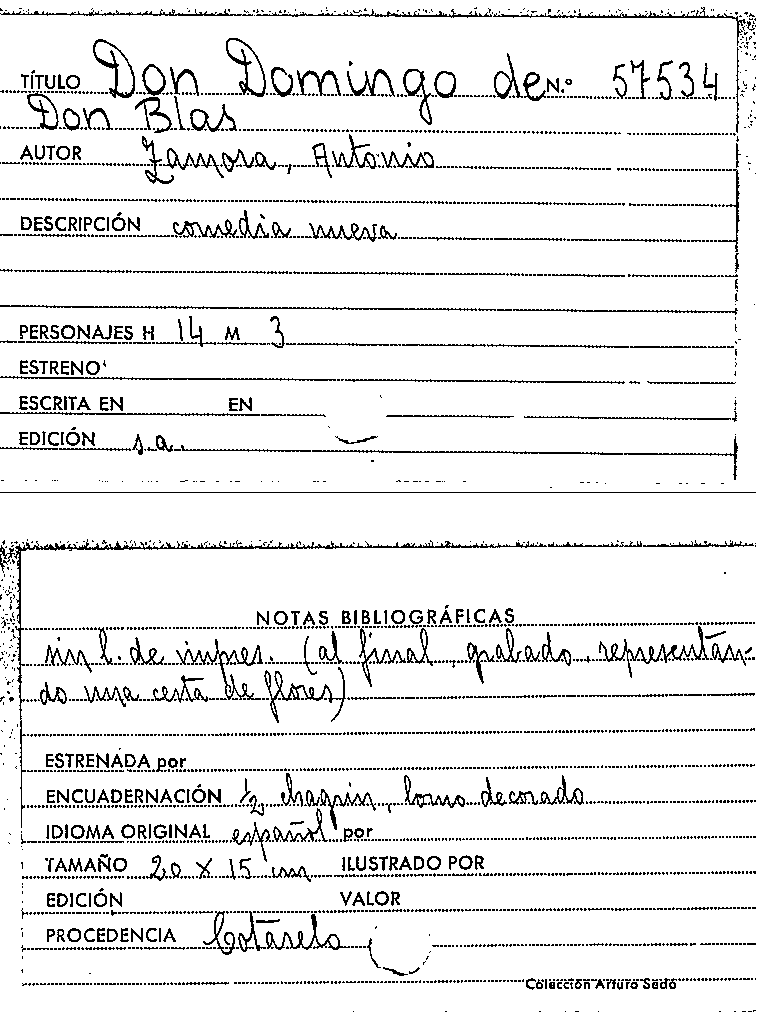 TÍTULO Don Domingo de N.º 57534
Don Blas
AUTOR Zamora, Antonio
DESCRIPCIÓN comedia nueva
PERSONAJES H 14 M 3
ESTRENO
ESCRITA EN EN
EDICIÓN s.a.
NOTAS BIBLIOGRÁFICAS
sin l. de impres. (al final, grabado, representan-
do una cesta de flores)
ESTRENADA por
ENCUADERNACIÓN ½ chagrin, lomo decorado
IDIOMA ORIGINAL español por
TAMAÑO 20 X 15 cm ILUSTRADO POR
EDICIÓN VALOR
PROCEDENCIA Cotarelo
Colección Arturo Sedó